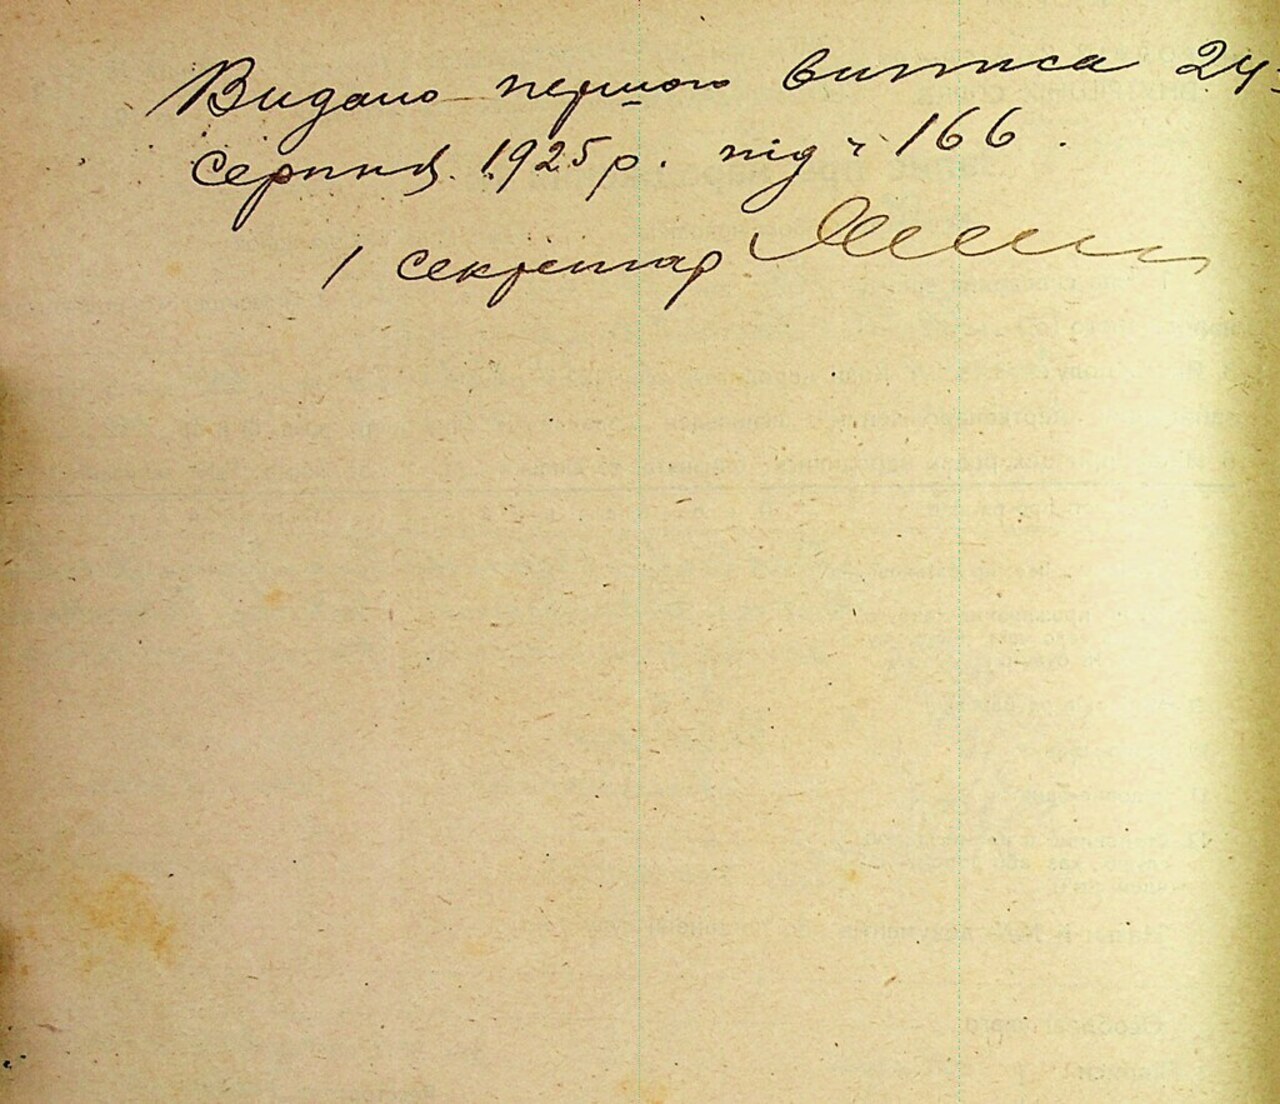 Видано першого виписа 24
серпня 1925 р. під ч 166.
/ секретар